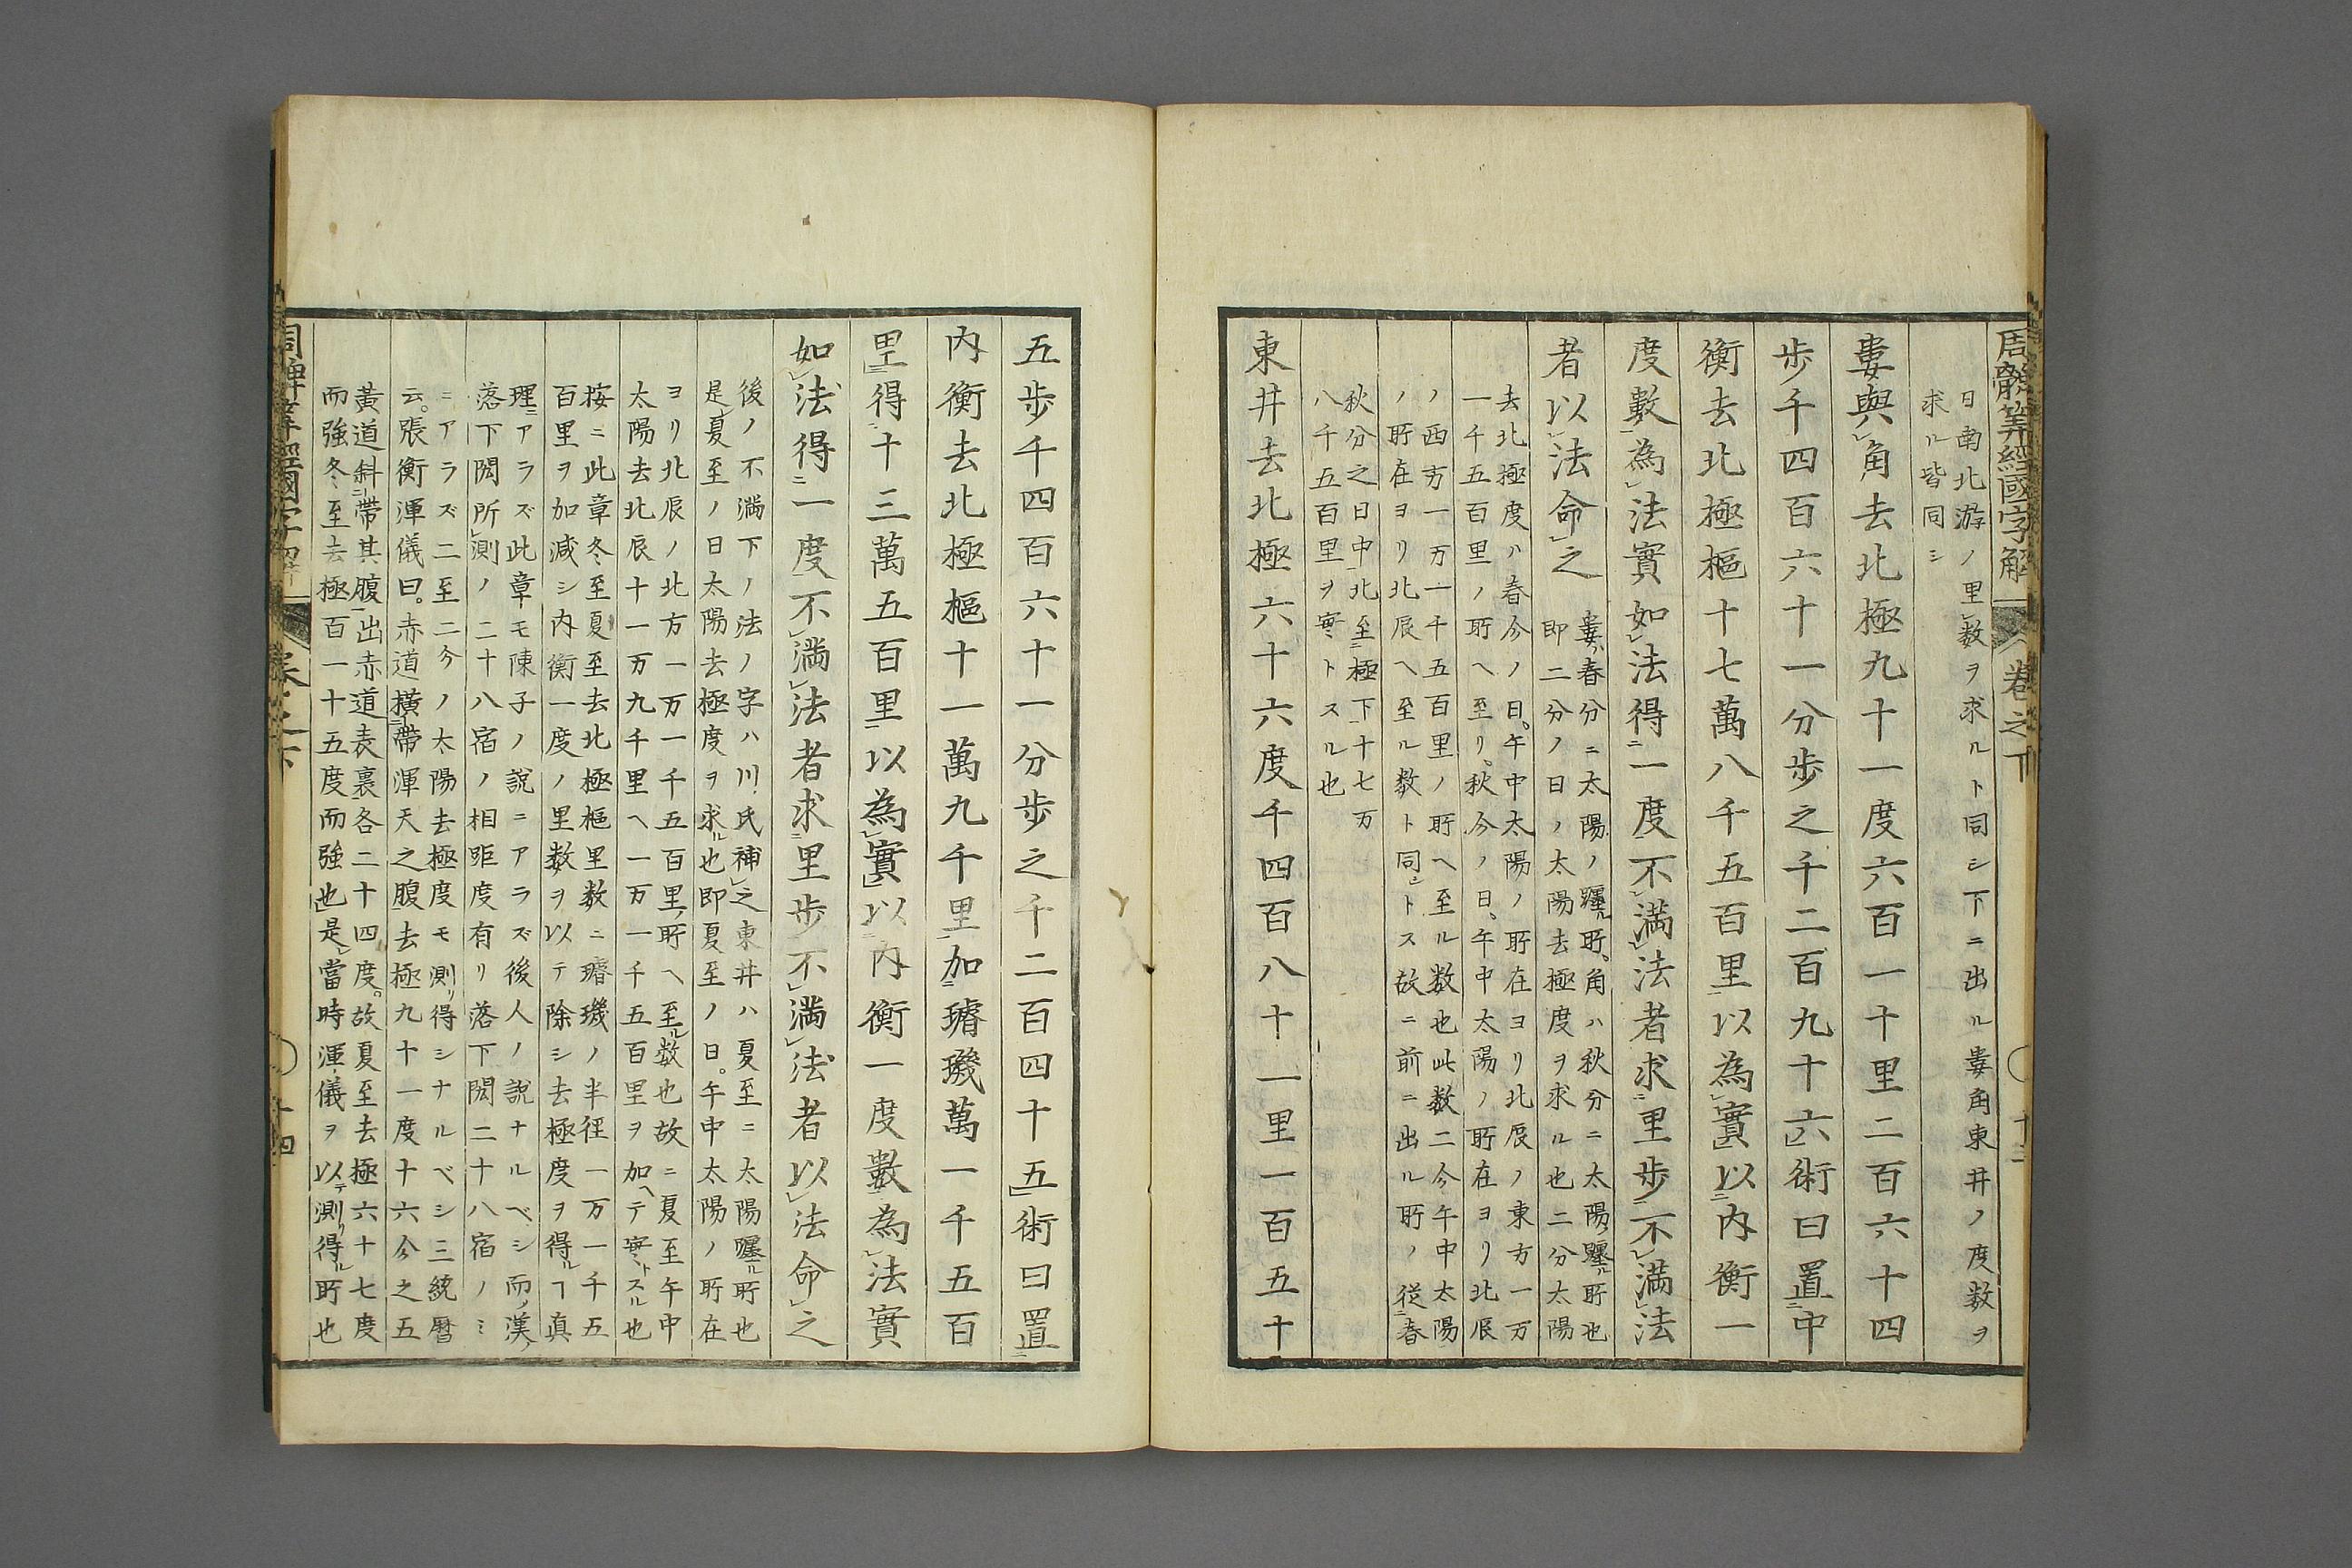 周髀算經國字解 卷之下
日南北游ノ里數ヲ求ルト同シ下ニ出ル婁角東井ノ度数ヲ
求ル皆同シ
婁與角去北極九十一度六百一十里二百六十四
歩千四百六十一分歩之千二百九十六術曰置中
衡去北極樞十七萬八千五百里以為實以内衡一
度數為法實如法得一度不滿法者求里歩不滿法
者以法命之
婁ハ春分ニ太陽ノ躔ル所角ハ秋分ニ太陽ノ躔ル所也
即二分ノ日ノ太陽去極度ヲ求ル也二分太陽
去北極度ハ春分ノ日午中太陽ノ所在ヨリ北辰ノ東方一万
一千五百里ノ所ヘ至リ秋分ノ日午中太陽ノ所在ヨリ北辰
ノ西方一万一千五百里ノ所ヘ至ル数也此数二分午中太陽
ノ所在ヨリ北辰ヘ至ル数ト同シトス故ニ前ニ出ル所ノ從春
秋分之日中北至極下十七万
八千五百里ヲ實トスル也
東井去北極六十六度千四百八十一里一百五十
五歩千四百六十一分歩之千二百四十五術曰置
内衡去北極樞十一萬九千里加璿璣萬一千五百
里得十三萬五百里以為實以内衡一度數為法實
如法得一度不滿法者求里歩不滿法者以法命之
後ノ不滿下ノ法ノ字ハ川氏補之東井ハ夏至ニ太陽躔ル所也
是夏至ノ日太陽去極度ヲ求ル也即夏至ノ日午中太陽ノ所在
ヨリ北辰ノ北方一万一千五百里ノ所ヘ至ル数也故ニ夏至午中
太陽去北辰十一万九千里ヘ一万一千五百里ヲ加ヘテ實トスル也
按ニ此章冬至夏至去北極樞里数ニ璿璣ノ半徑一万一千五
百里ヲ加減シ内衡一度ノ里数ヲ以テ除シ去極度ヲ得ルヿ真
理ニアラズ此章モ陳子ノ説ニアラズ後人ノ説ナルベシ而ノ漢ノ
落下閎所測ノ二十八宿ノ相距度有リ落下閎二十八宿ノミ
ニアラズ二至二分ノ太陽去極度モ測リ得シナルベシ三統暦
云張衡渾儀曰赤道横帶渾天之腹去極九十一度十六分之五
黄道斜帶其腹出赤道表裏各二十四度故夏至去極六十七度
而強冬至去極百一十五度而強也是當時渾儀ヲ以テ測リ得ル所也